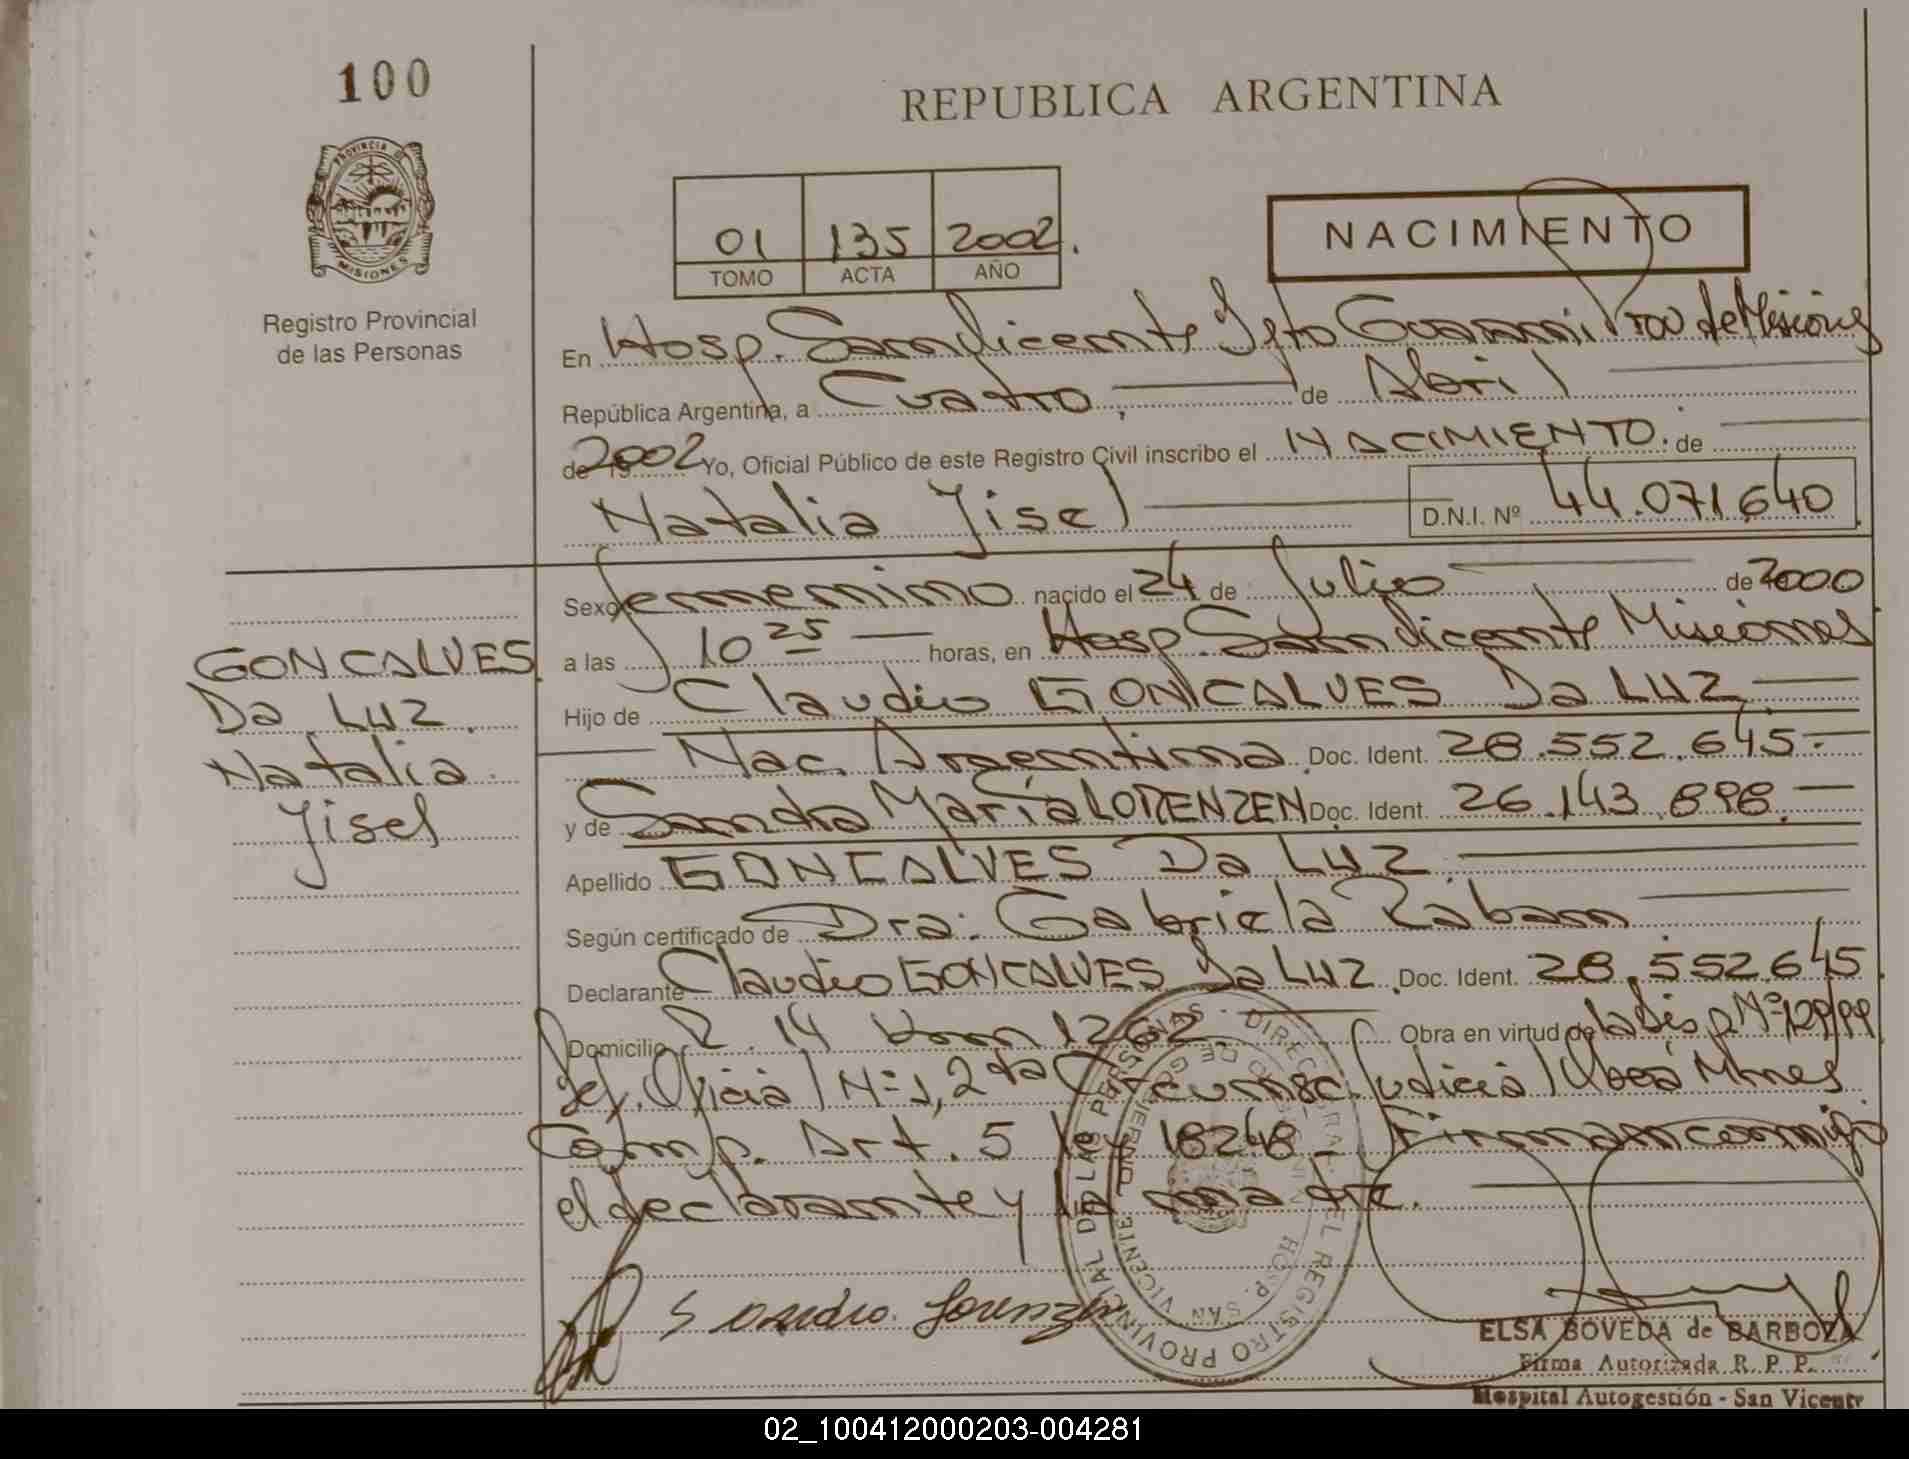 100
PROVINCIA DE
MISIONES
Registro Provincial
de las Personas
REPUBLICA ARGENTINA
01 135 2002.
TOMO ACTA AÑO
NACIMIENTO
En Hosp. San Vicente Dpto Guarani Prov de Misiones
República Argentina, a Cuatro, de Abril
de 2002 Yo, Oficial Público de este Registro Civil inscribo el NACIMIENTO. de
Natalia Jisel D.N.I. Nº 44.071.640
Sexo femenino nacido el 24 de Julio de 2000
a las 10 25 horas, en Hosp. San Vicente Misiones
Hijo de Claudio GONCALVES Da LUZ
Nac. Argentina. Doc. Ident. 28.552.645.-
y de Sandra María LORENZEN Doc. Ident. 26.143.898.
Apellido GONCALVES Da LUZ.
Según certificado de Dra. Gabriela Raban
Declarante Claudio GONCALVES Da LUZ. Doc. Ident. 28.552.645.
Domicilio 14 1262. Obra en virtud de la Disp. Nº
Def. Oficial Nº 1, 2da Circunsc. Judicial Obera Mnes
Comp. Art. 5 ley 18248 - Firman conmigo
el declarante y la madre.
GONCALVES
Da LUZ.
Natalia
Jisel
Sandra Lorenzen
REGISTRO PROVINCIAL DE LAS PERSONAS - DIREC
HOSP. SAN VICENTE
ELSA BOVEDA de BARBOZA
Firma Autorizada R. P. P.
Hospital Autogestión - San Vicente
02_100412000203-004281